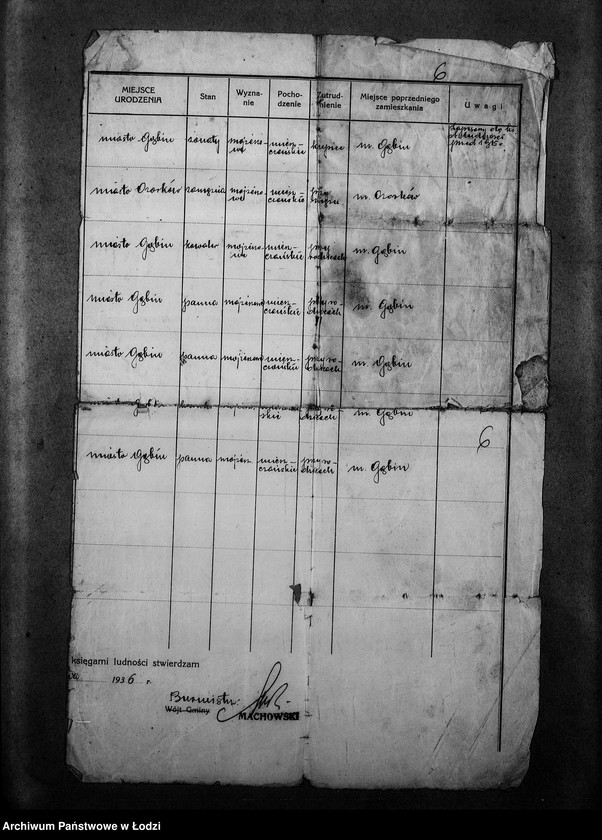 6
MIEJSCE URODZENIA | Stan | Wyzna-nie | Pocho-dzenie | Zatrud-nienie | Miejsce poprzedniego zamieszkania | Uwagi
miasto Gąbin | żonaty | mojżeszo-we | miesz-czańskie | krawiec | m. Gąbin | Zapisany do ks. przed 1915 r.
miasto Ozorków | zamężna | mojżeszo-we | miesz-czańskie | przy mężu | m. Ozorków
miasto Gąbin | kawaler | mojżeszo-we | miesz-czańskie | przy rodzicach | m. Gąbin
miasto Gąbin | panna | mojżeszowe | miesz-czańskie | przy ro-dzicach | m. Gąbin
miasto Gąbin | panna | mojżeszowe | miesz-czańskie | przy ro-dzicach | m. Gąbin
m. Gąbin
6
miasto Gąbin | panna | mojżesz. | miesz-czańskie | przy ro-dzicach | m. Gąbin
księgarni ludności stwierdzam
1936 r.
Burmistrz
Wójt Gminy
MACHOWSKI
Archiwum Państwowe w Łodzi